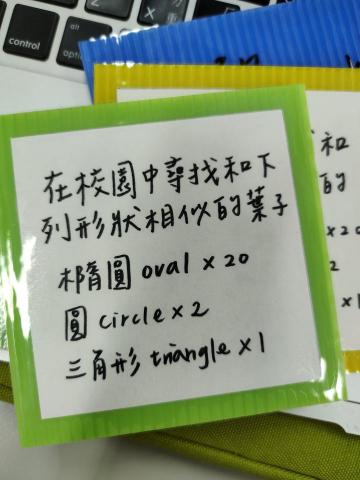 在校園中尋找和下
列形狀相似的葉子
橢圓 oval × 20
圓 circle × 2
三角形 triangle × 1
和
的
× 20
2
× 1
control
alt
option